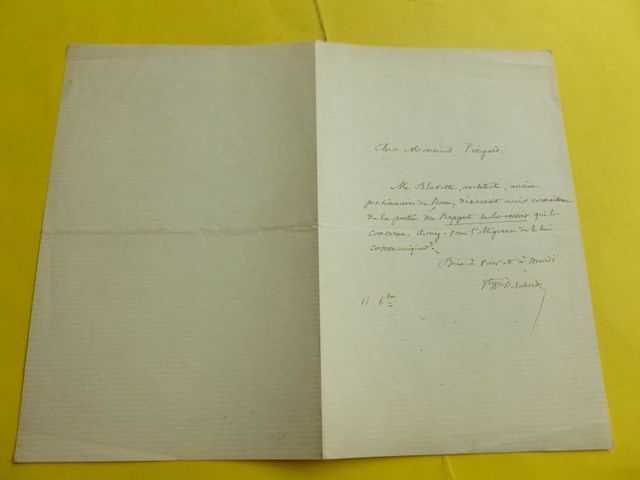 Cher Monsieur
M. Blavette, architecte, ancien
pensionnaire de Rome, désirerait avoir connaissance
de la partie du Rapport sur les envois qui le
concerne. Auriez-vous l'obligeance de la lui
communiquer?
Bien à vous et à Mardi
Vte Hri Delaborde
11 8bre